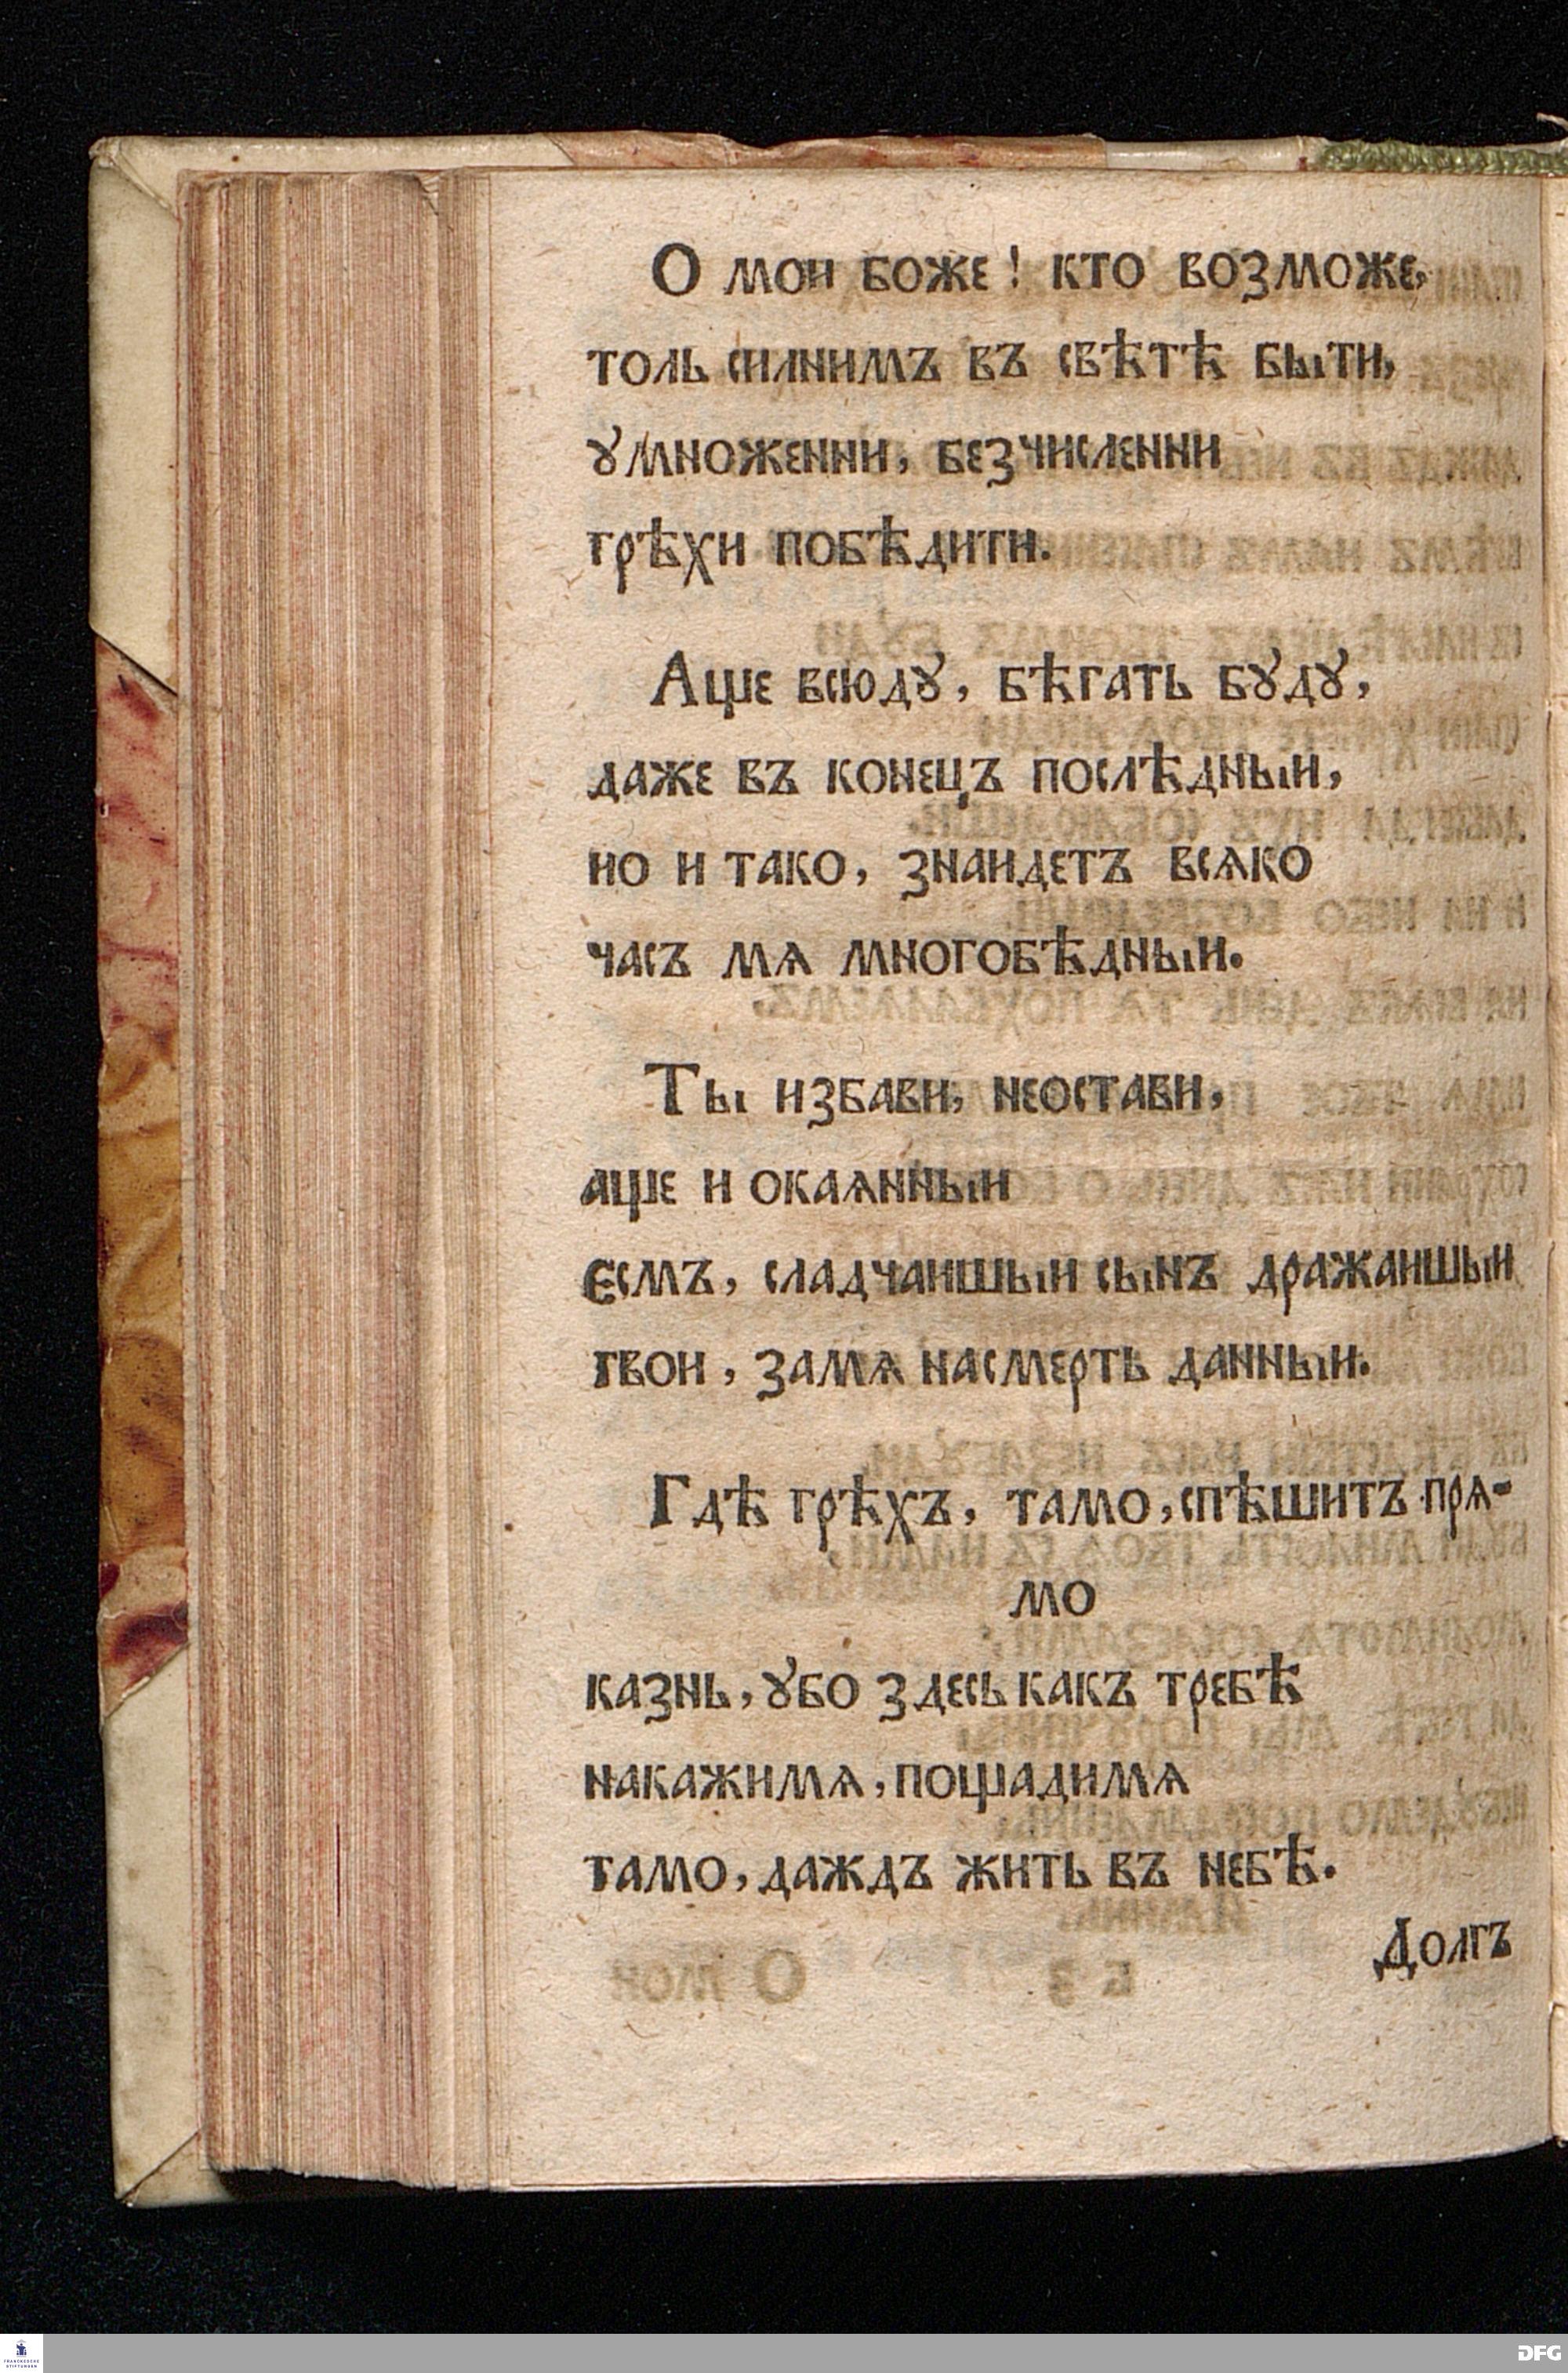 О мои боже! кто возможе,
толь силнимъ въ свѣтѣ быти,
ꙋмноженни, безчисленни
грѣхи побѣдити.
Аще всюдꙋ, бѣгать бꙋдꙋ,
даже въ конецъ послѣдныи,
но и тако, знаидетъ всѧко
часъ мѧ многобѣдныи.
Ты избави, неостави,
аще и окаѧнныи
есмъ, сладчаишыи сынъ дражаишыи
твои, замѧ насмерть данныи.
Гдѣ грѣхъ, тамо, спѣшитъ прѧ-
мо
казнь, ꙋбо здесь какъ требѣ
накажимѧ, пощадимѧ
тамо, даждъ жить въ небѣ.
Долгъ
FRANCKESCHE
STIFTUNGEN
DFG